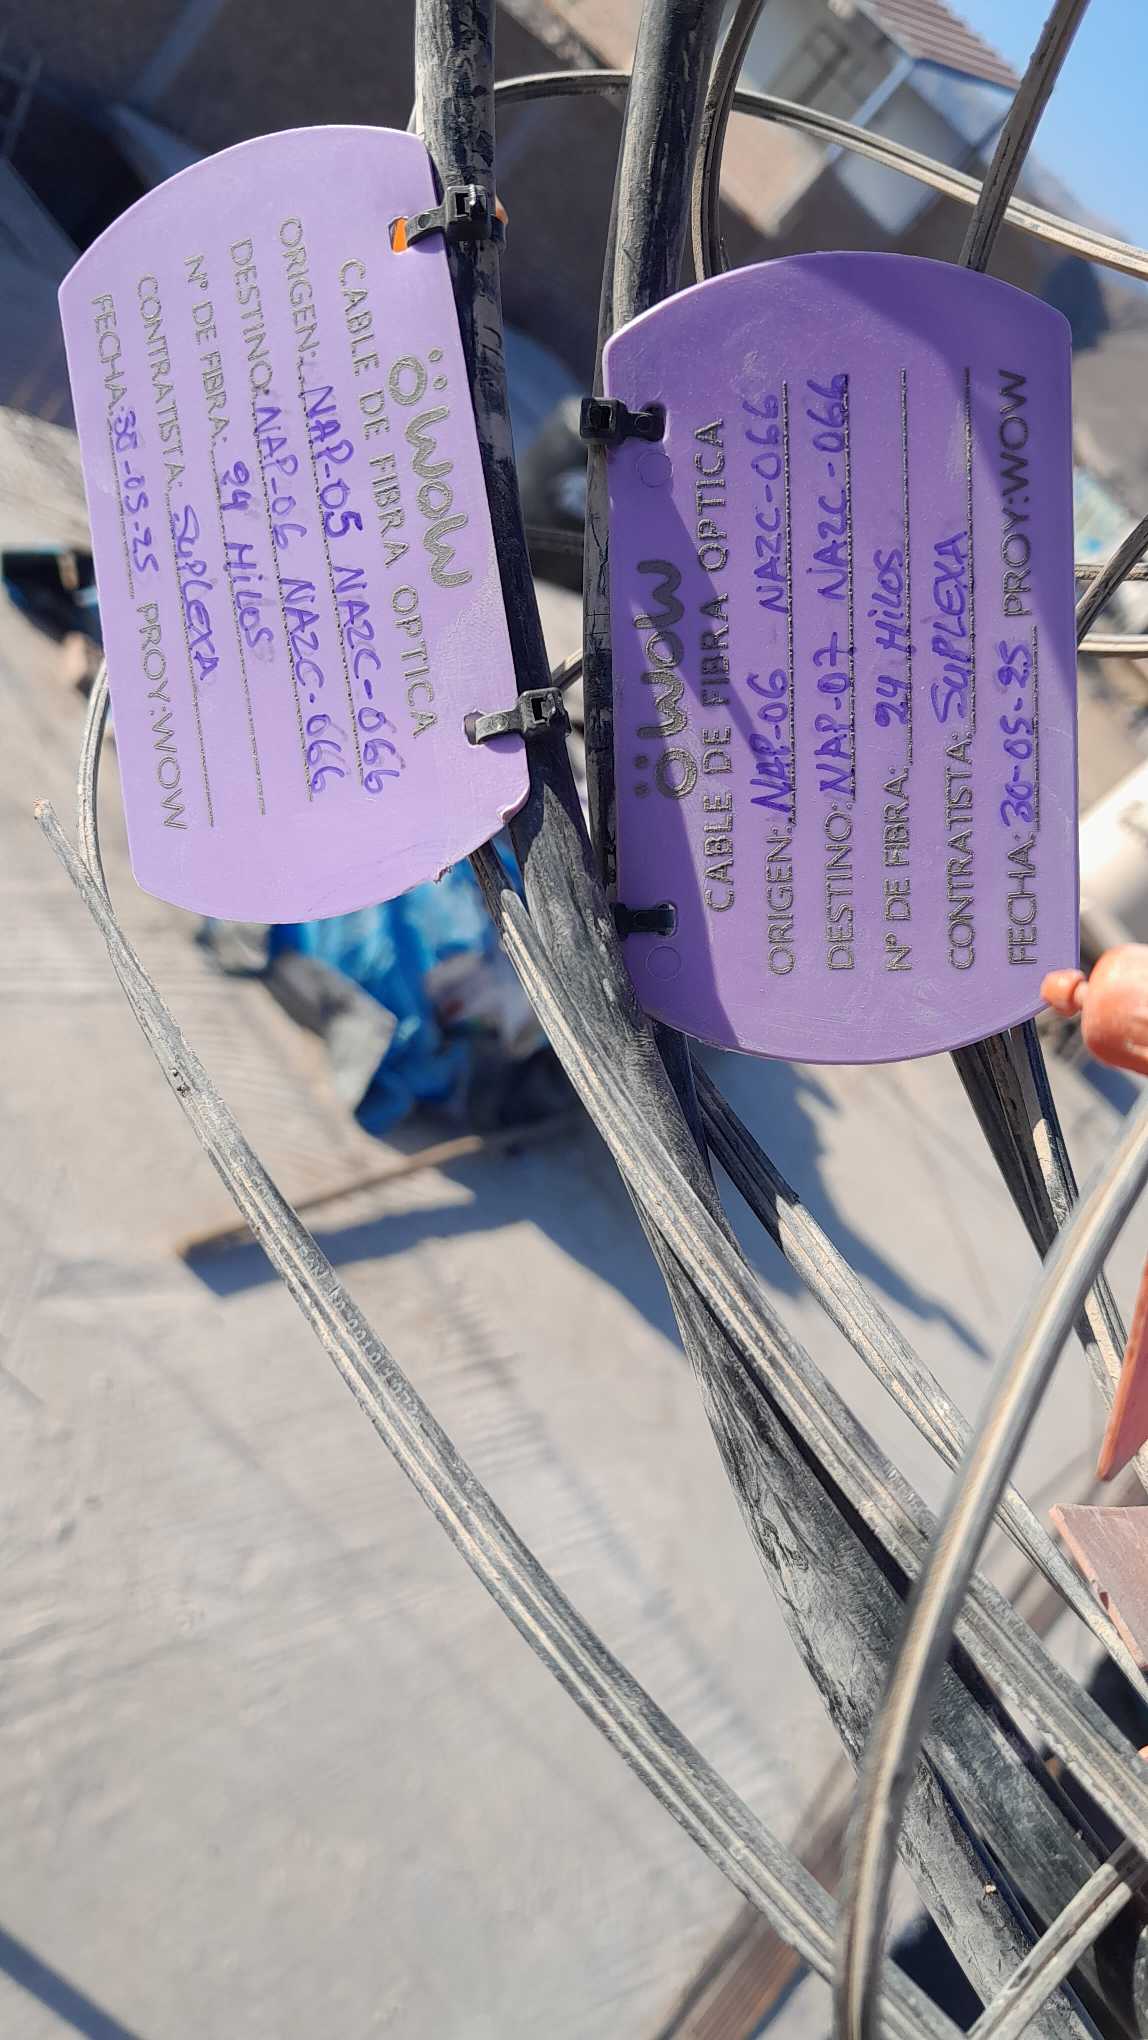 öwow
CABLE DE FIBRA OPTICA
ORIGEN: NAP-05 NAZC-066
DESTINO: NAP-06 NAZC-066
N° DE FIBRA: 24 Hilos
CONTRATISTA: SUPLEXA
FECHA: 30-05-25 PROY:WOW
öwow
CABLE DE FIBRA OPTICA
ORIGEN: NAP-06 NAZC-066
DESTINO: NAP-07 NAZC-066
N° DE FIBRA: 24 Hilos
CONTRATISTA: SUPLEXA
FECHA: 30-05-25 PROY:WOW